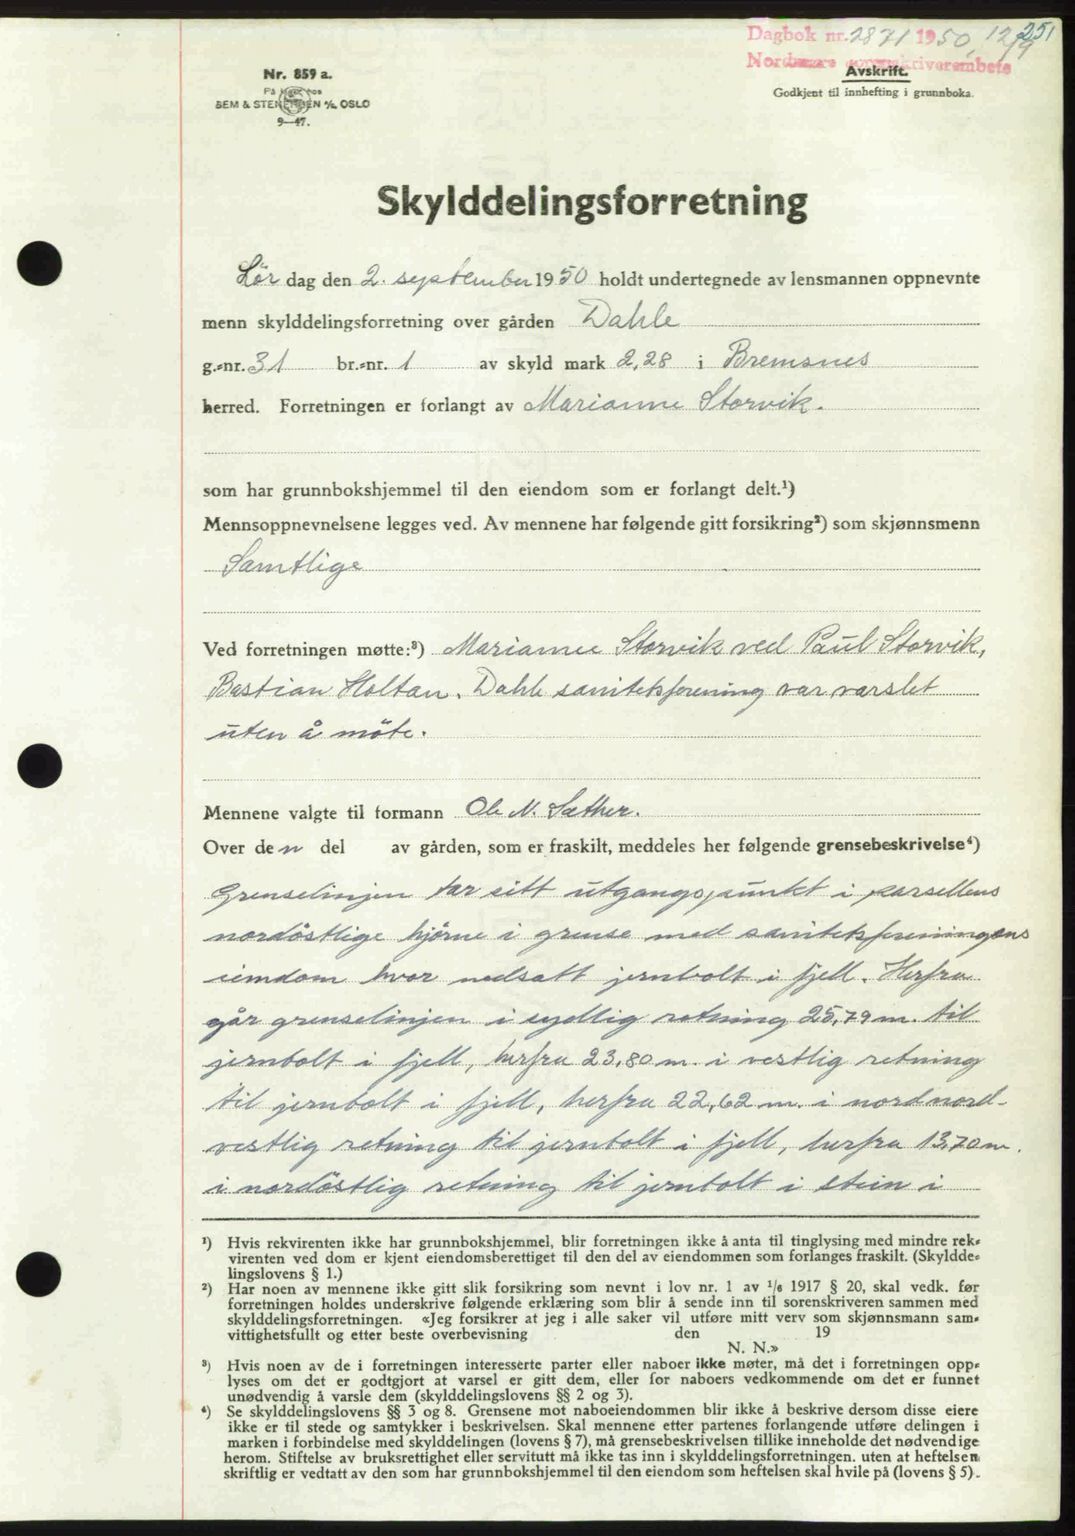 Dagbok nr. 2871 1950, 12/9
251
Nordmøre sorenskriverembete
Avskrift.
Godkjent til innhefting i grunnboka.
Nr. 859 a.
På lager hos
SEM & STENERSEN A/S, OSLO
9—47.
Skylddelingsforretning
Lør dag den 2. september 1950 holdt undertegnede av lensmannen oppnevnte
menn skylddelingsforretning over gården Dahle
g.-nr. 31 br.-nr. 1 av skyld mark 2,28 i Bremsnes
herred. Forretningen er forlangt av Marianne Storvik.
som har grunnbokshjemmel til den eiendom som er forlangt delt.¹)
Mennsoppnevnelsene legges ved. Av mennene har følgende gitt forsikring²) som skjønnsmenn
Samtlige
Ved forretningen møtte:³) Marianne Storvik ved Paul Storvik,
Bastian Holtan. Dahle sanitetsforening var varslet
uten å möte.
Mennene valgte til formann Ole N. Sæther.
Over den del av gården, som er fraskilt, meddeles her følgende grensebeskrivelse⁴)
Grenselinjen tar sitt utgangspunkt i parsellens
nordöstlige hjörne i grense med sanitetsforeningens
eiendom hvor nedsatt jernbolt i fjell. Herfra
går grenselinjen i sydlig retning 25,79 m. til
jernbolt i fjell, herfra 23,80 m. i vestlig retning
til jernbolt i fjell, herfra 22,62 m. i nordnord-
vestlig retning til jernbolt i fjell, herfra 13,70 m.
i nordöstlig retning til jernbolt i stein i
¹) Hvis rekvirenten ikke har grunnbokshjemmel, blir forretningen ikke å anta til tinglysing med mindre rek-
virenten ved dom er kjent eiendomsberettiget til den del av eiendommen som forlanges fraskilt. (Skyldde-
lingslovens § 1.)
²) Har noen av mennene ikke gitt slik forsikring som nevnt i lov nr. 1 av 1/6 1917 § 20, skal vedk. før
forretningen holdes underskrive følgende erklæring som blir å sende inn til sorenskriveren sammen med
skylddelingsforretningen. «Jeg forsikrer at jeg i alle saker vil utføre mitt verv som skjønnsmann sam-
vittighetsfullt og etter beste overbevisning den 19
N. N.»
³) Hvis noen av de i forretningen interesserte parter eller naboer ikke møter, må det i forretningen opp-
lyses om det er godtgjort at varsel er gitt dem, eller for naboers vedkommende om det er funnet
unødvendig å varsle dem (skylddelingslovens §§ 2 og 3).
⁴) Se skylddelingslovens §§ 3 og 8. Grensene mot naboeiendommen blir ikke å beskrive dersom disse eiere
ikke er til stede og samtykker i beskrivelsen. Skal mennene etter partenes forlangende utføre delingen i
marken i forbindelse med skylddelingen (lovens § 7), må grensebeskrivelsen tillike inneholde det nødvendige
herom. Stiftelse av bruksrettighet eller servitutt må ikke tas inn i skylddelingsforretningen. uten at heftelsen
skriftlig er vedtatt av den som har grunnbokshjemmel til den eiendom som heftelsen skal hvile på (lovens § 5).